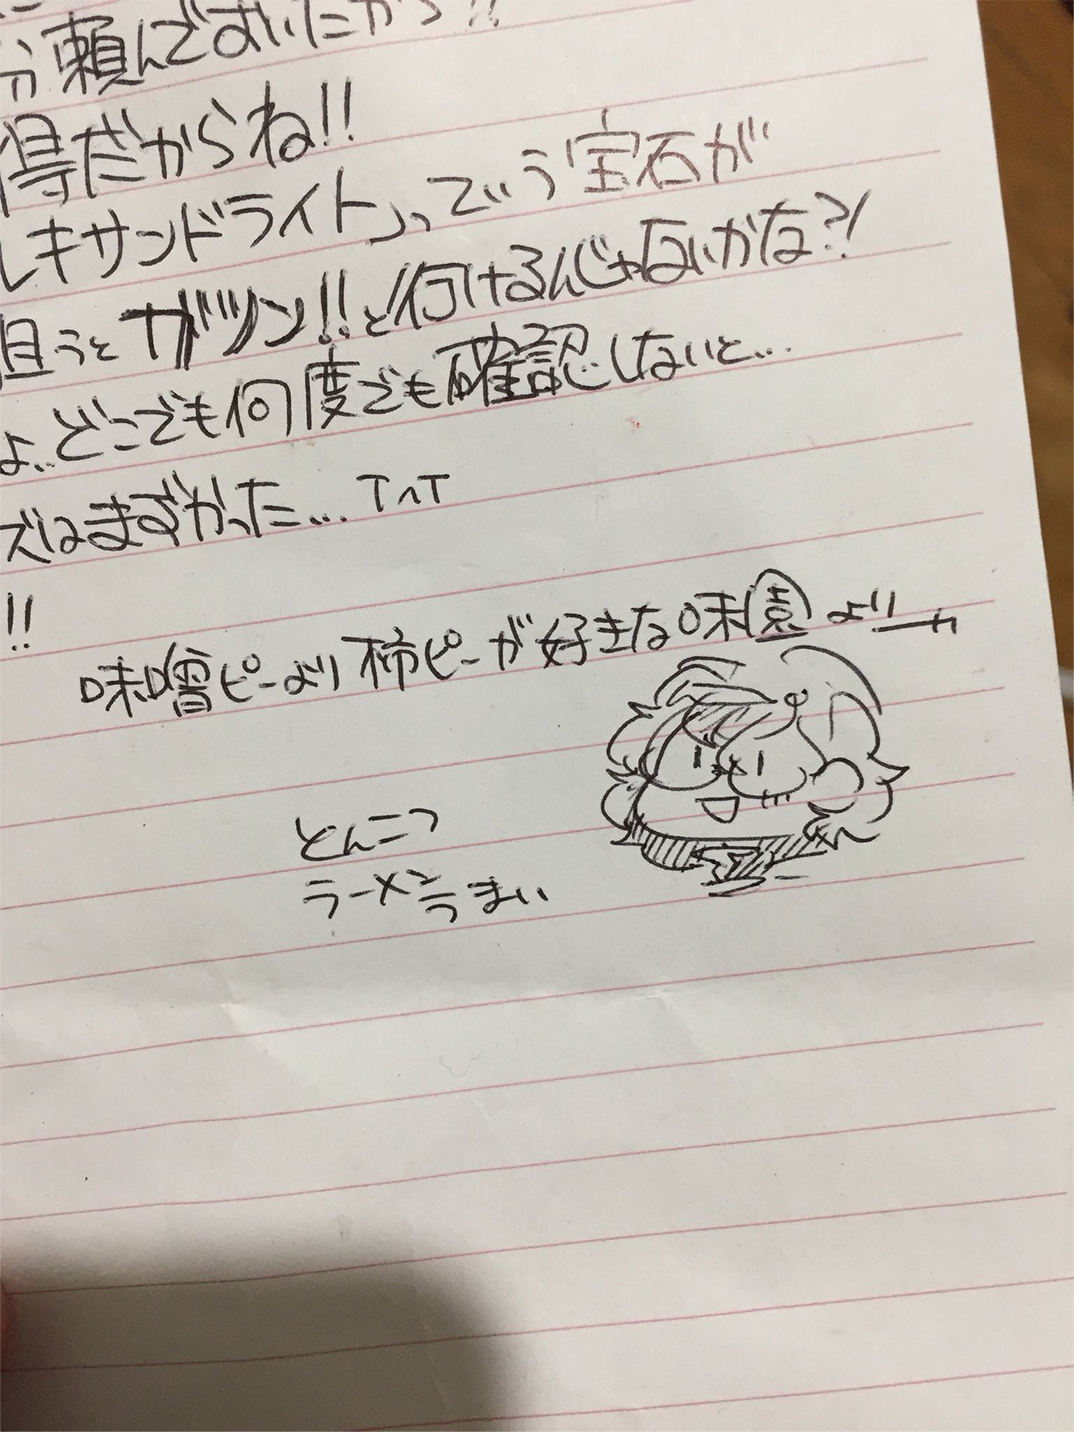 頼んでおいたから!!
得だからね!!
レキサンドライト」っていう宝石が
狙うとガツン!!と行けるんじゃないかな?!
よ...どこでも何度でも確認しないと...
ズはまずかった... T^T
!!
味噌ピーより柿ピーが好きな味園より
とんこつ
ラーメンうまい